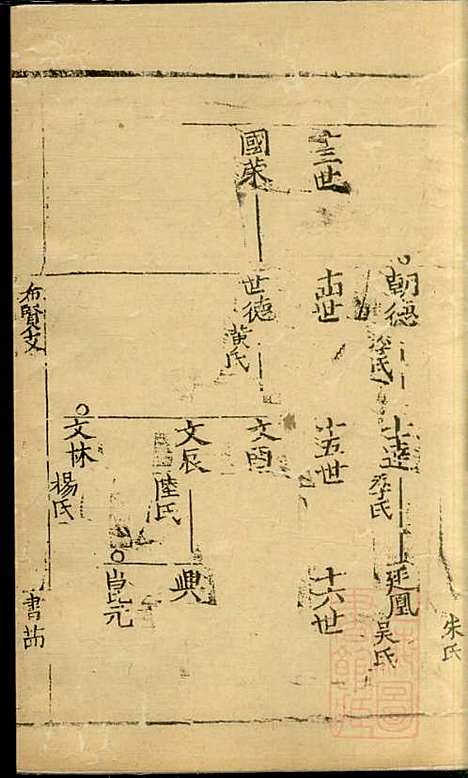 朱氏
朝德
李氏
士達
季氏
廷鳳
吳氏
十三世
十四世
十五世
十六世
國榮
世德
黃氏
文酉
文辰
陸氏
興
文林
楊氏
昆元
布賢支
書茆